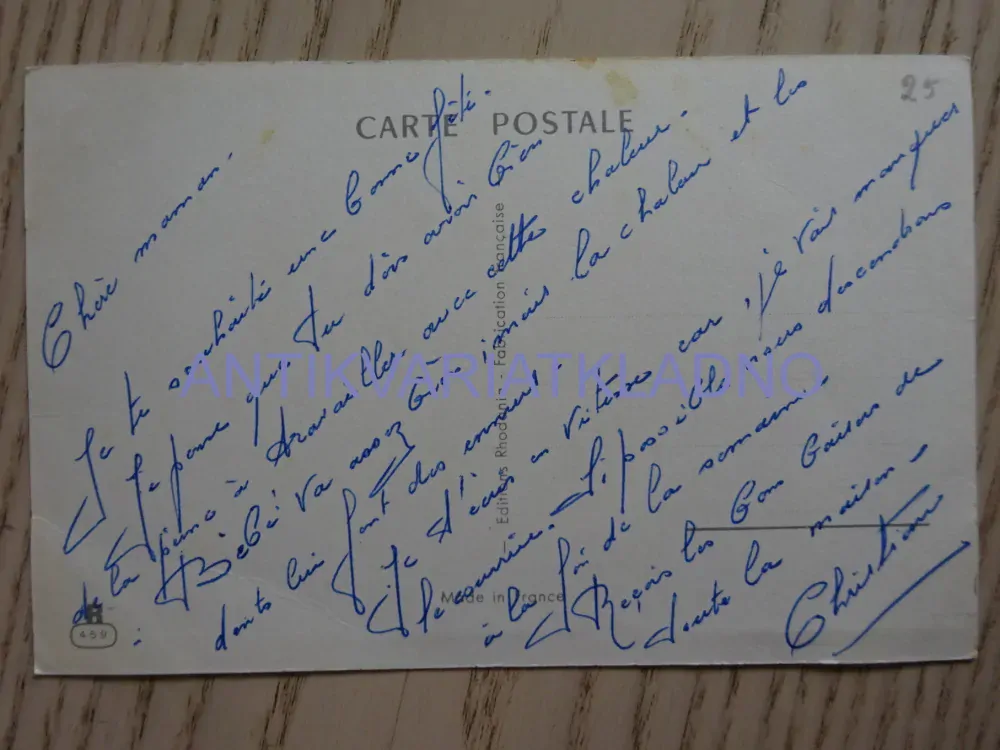 25
CARTE POSTALE
Chère maman.
Je te souhaite une bonne fête.
Je pense que tu dois avoir bien
de la peine à travailler avec cette chaleur.
Bébé va assez bien mais la chaleur et les
dents lui font des ennuis.
Je t'écris en vitesse car je vais manquer
le courrier. Si possible nous descendons
à la fin de la semaine.
Reçois les bons baisers de
toute la maison.
Christiane
Editions Rhodania - Fabrication Française
Made in France
459
ANTIKVARIATKLADNO